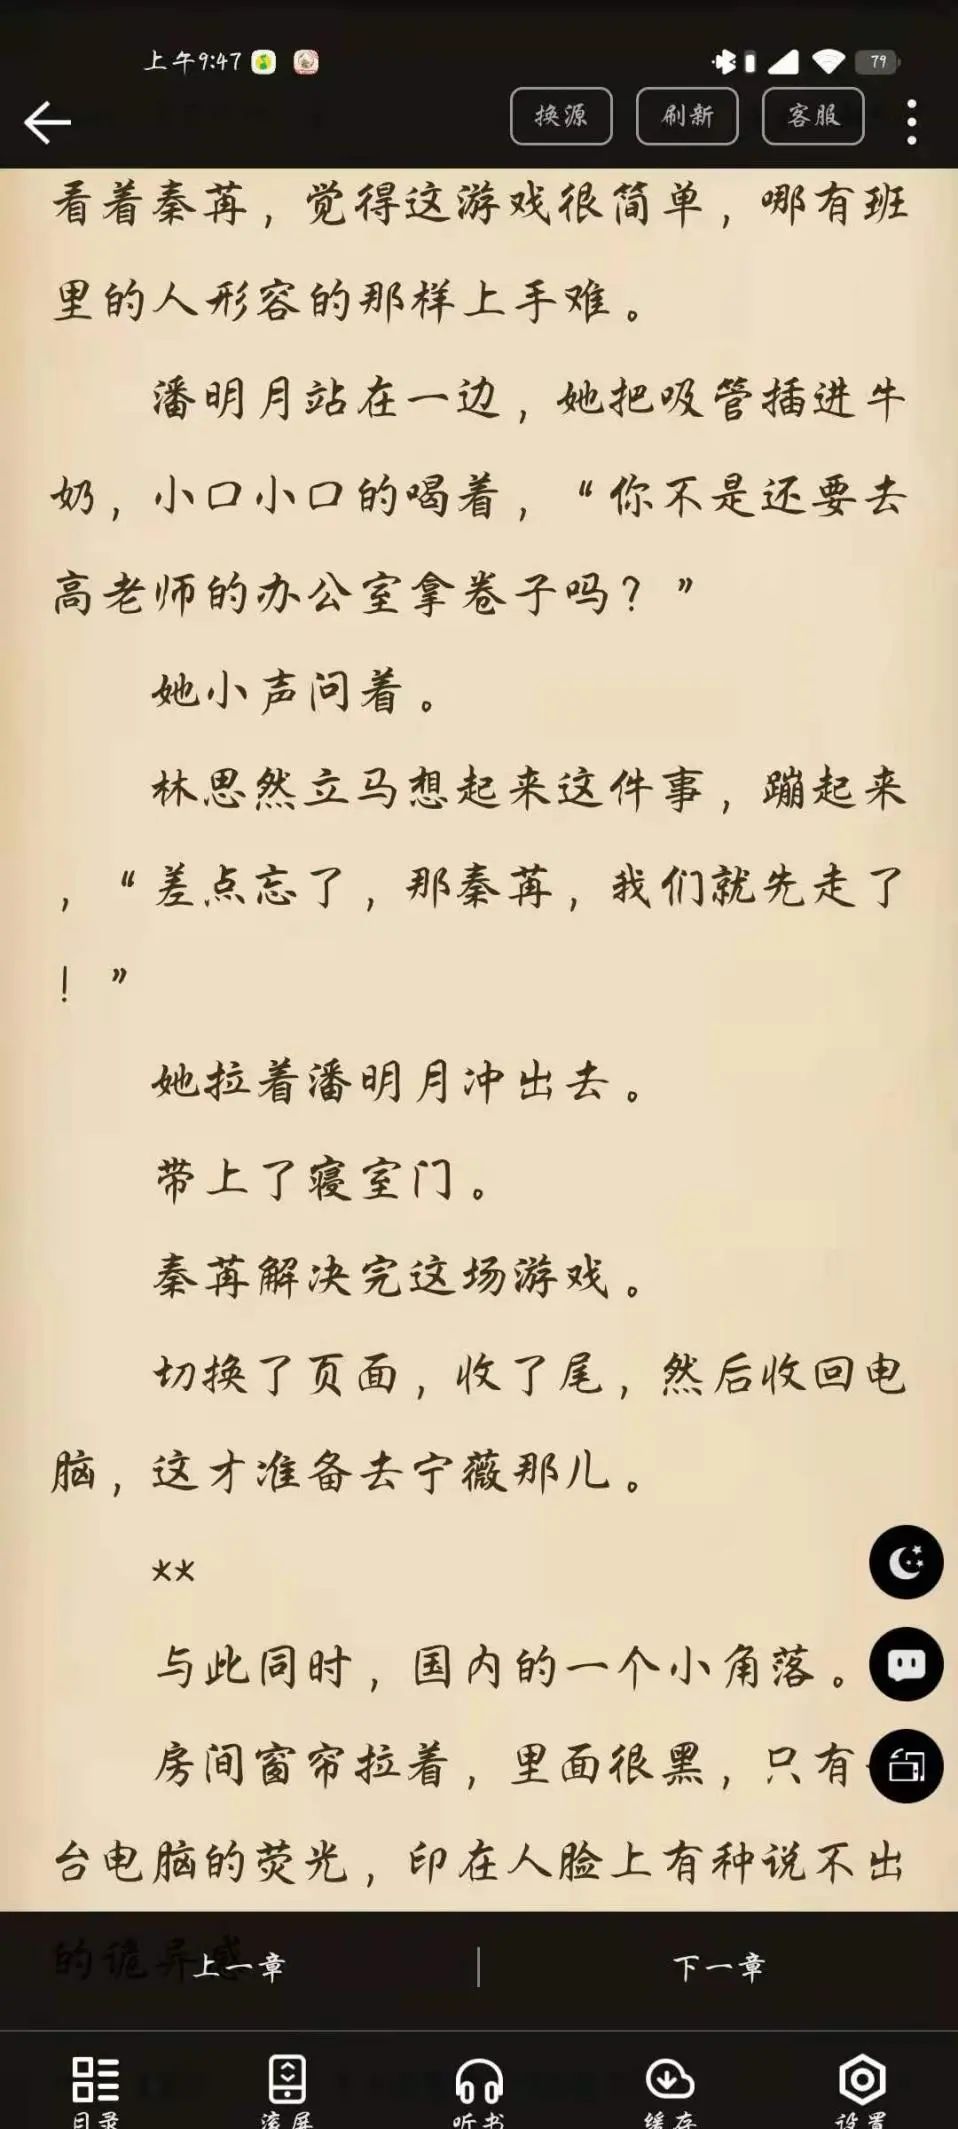 上午9:47
79
换源 刷新 客服
看着秦苒，觉得这游戏很简单，哪有班
里的人形容的那样上手难。
潘明月站在一边，她把吸管插进牛
奶，小口小口的喝着，“你不是还要去
高老师的办公室拿卷子吗？”
她小声问着。
林思然立马想起来这件事，蹦起来
，“差点忘了，那秦苒，我们就先走了
！”
她拉着潘明月冲出去。
带上了寝室门。
秦苒解决完这场游戏。
切换了页面，收了尾，然后收回电
脑，这才准备去宁薇那儿。
**
与此同时，国内的一个小角落。
房间窗帘拉着，里面很黑，只有
台电脑的荧光，印在人脸上有种说不出
的诡异感
上一章 | 下一章
目录 滚屏 听书 缓存 设置